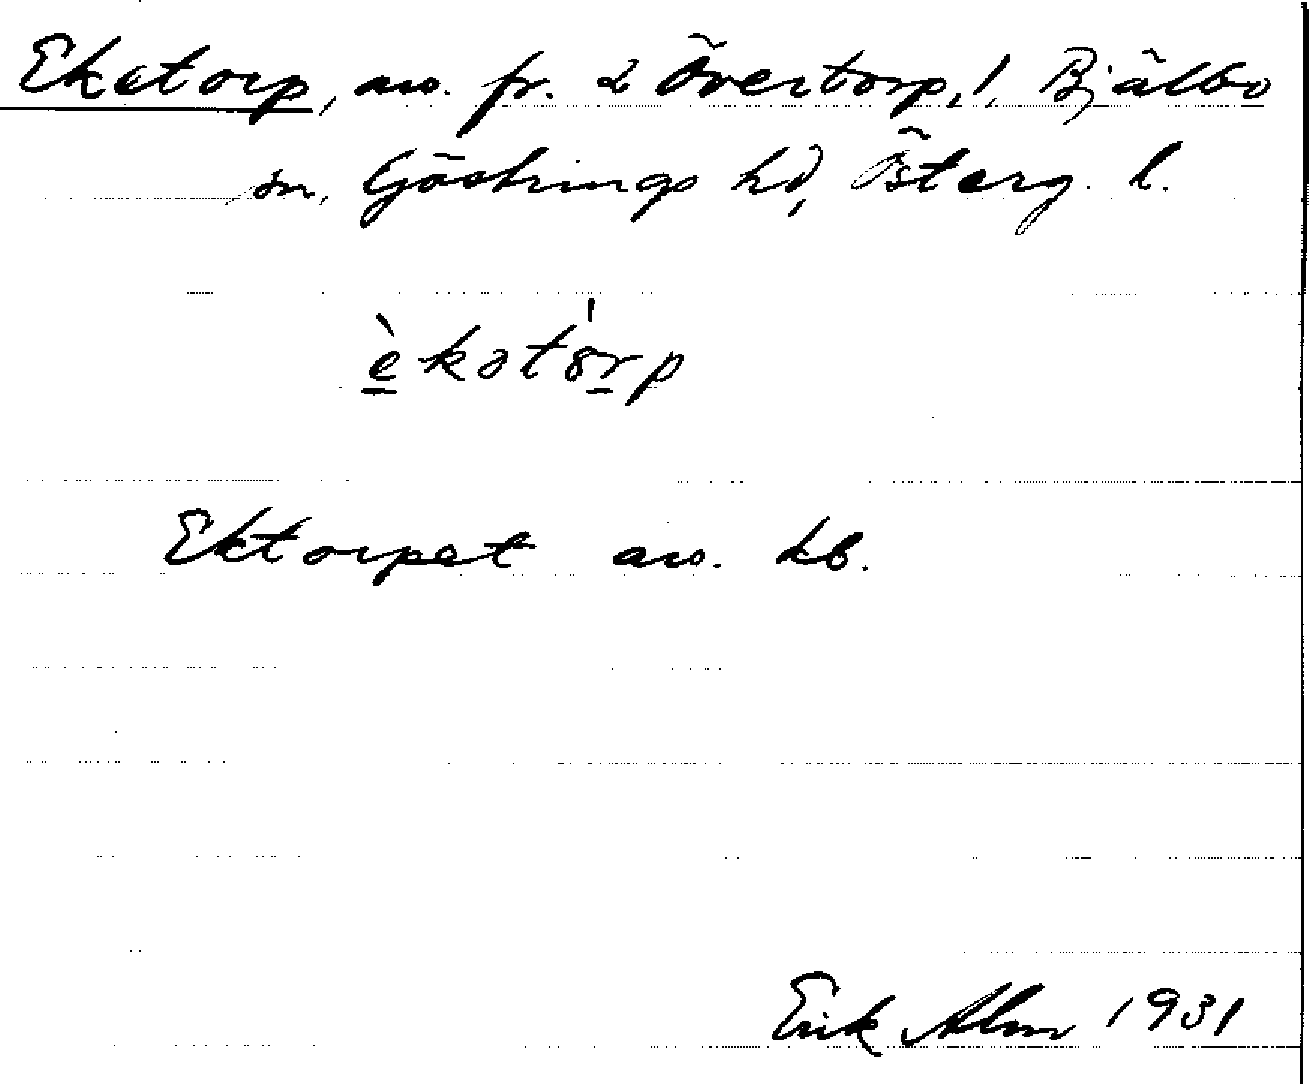 Eketorp, avs. fr. 2 Övertorp, 1, Bjälbo
sn, Göstrings hd, Österg. l.
èkətórp
Ektorpet avs. kb.
Erik Alm 1931